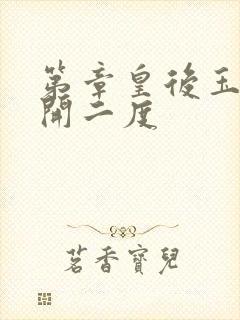 第章皇後玉
開二度
茗香寶兒